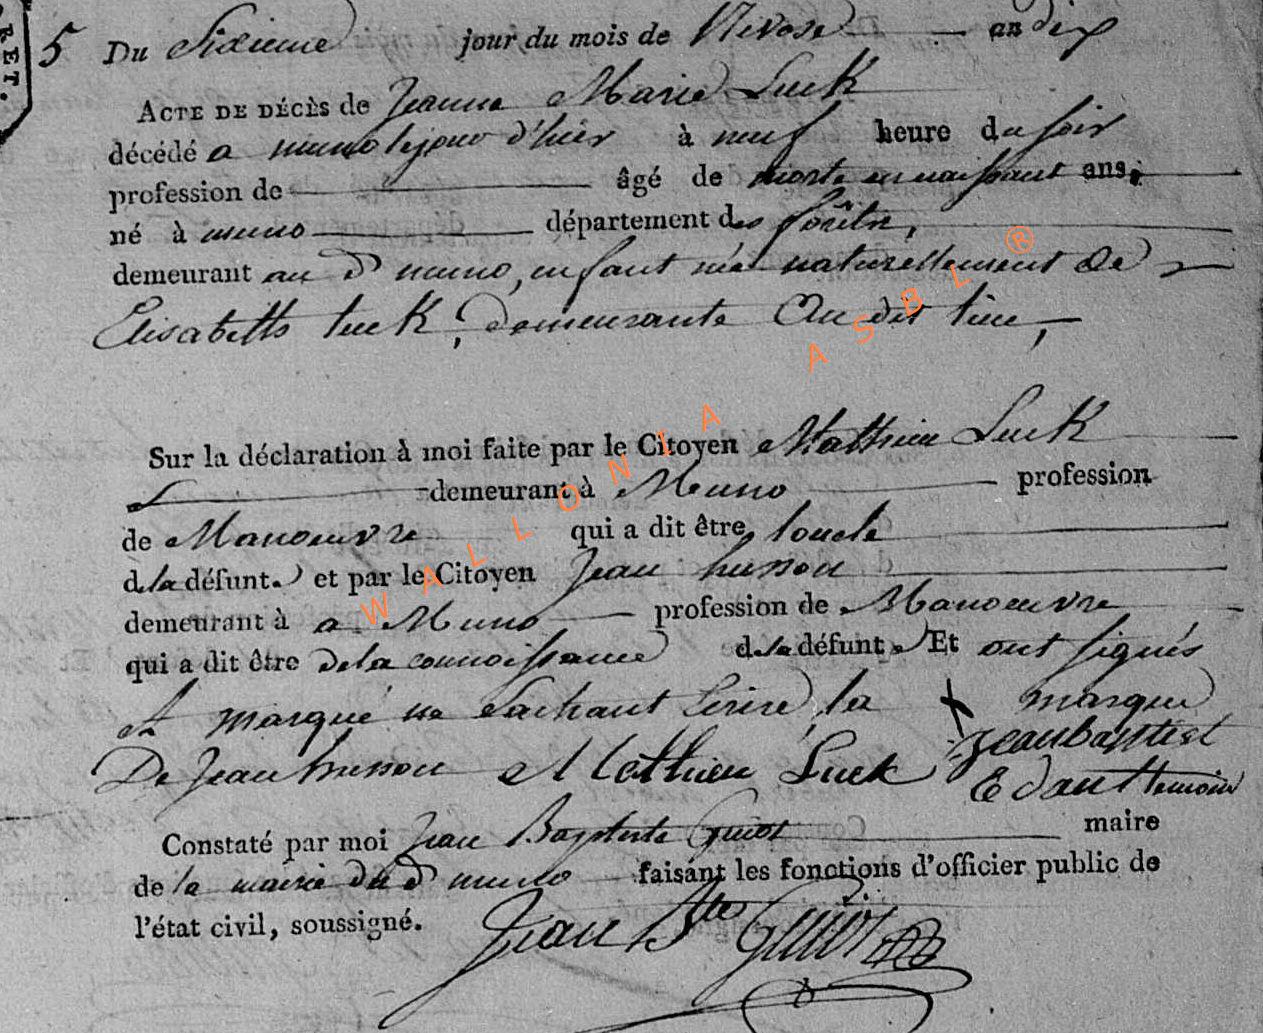 RET.
5 Du Sixieme jour du mois de Nivose an dix
ACTE DE DÉCÈS de Jeanne Marie Luck
décédé a muno le jour d'hier à neuf heure du soir
profession de âgé de morte en naissant ans,
né à muno département des forêts,
demeurant au d muno, enfant née naturellement de
Elisabeth luck, demeurante Au dit lieu,
Sur la déclaration à moi faite par le Citoyen Mathieu Luck
demeurant à Muno profession
de Manoeuvre qui a dit être loncle
d la défunt. et par le Citoyen Jean husson
demeurant à a Muno profession de Manoeuvre
qui a dit être de la connoissance de la défunte Et ont signés
et marqué ne sachant Ecrire, la X marque
De Jean husson Mathieu Luck Jean baptiste
temoin
Constaté par moi Jean Baptiste Guiot maire
de la mairie du d muno faisant les fonctions d'officier public de
l'état civil, soussigné. Jean Bte Guiot
WALLONIA ASBL ®